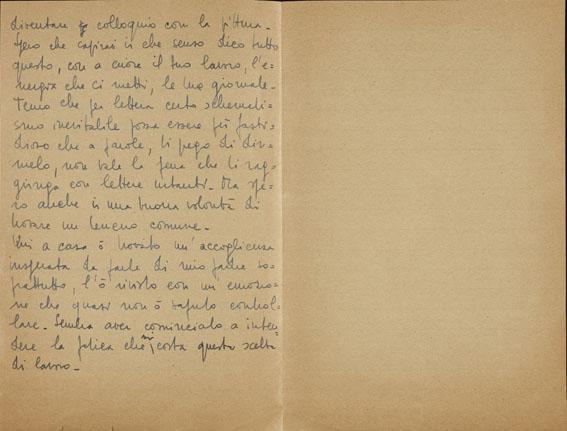 diventare colloquio con la pittura -
Spero che capirai in che senso dico tutto
questo, con a cuore il tuo lavoro, l'e-
nergia che ci metti, le tue giornate -
Temo che per lettera certo schemati-
smo inevitabile possa essere più fasti-
dioso che a parole, ti prego di dir-
melo, non vale la pena che ti rag-
giunga con lettere irritanti. Ma spe-
ro anche in una buona volontà di
trovare un terreno comune -
Qui a casa ò trovato un'accoglienza
insperata da parte di mio padre so-
prattutto, l'ò rivisto con un'emozio-
ne che quasi non ò saputo control-
lare - Sembra aver cominciato a inten-
dere la fatica che mi costa questa scelta
di lavoro -